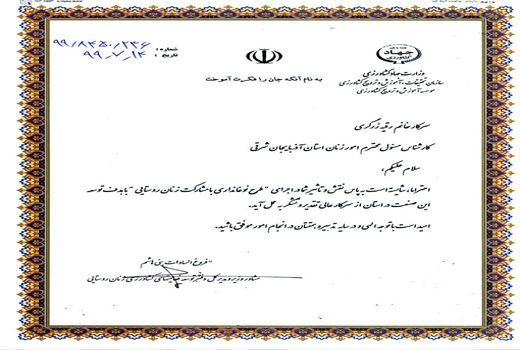 شماره: ۹۹/۸۴۵۰/۲۳۶
تاریخ: ۹۹-۷-۱۴
به نام آنکه جان را فکرت آموخت
جهاد
کشاورزی
وزارت جهاد کشاورزی
سازمان تحقیقات، آموزش و ترویج کشاورزی
موسسه آموزش و ترویج کشاورزی
سرکار خانم رقیه زرگری
کارشناس مسئول محترم امور زنان استان آذربایجان شرقی
سلام علیکم،
احتراما، شایسته است به پاس نقش و تاثیر شما در اجرای "طرح نوغانداری با مشارکت زنان روستایی" با هدف توسعه
این صنعت در استان از سرکار عالی تقدیر و تشکر به عمل آید.
امید است با توجه الهی و در سایه تدبیر و همتتان در انجام امور موفق باشید.
فروغ السادات بنی هاشم
مشاور وزیر و مدیر کل دفتر توسعه فعالیتهای کشاورزی زنان روستایی